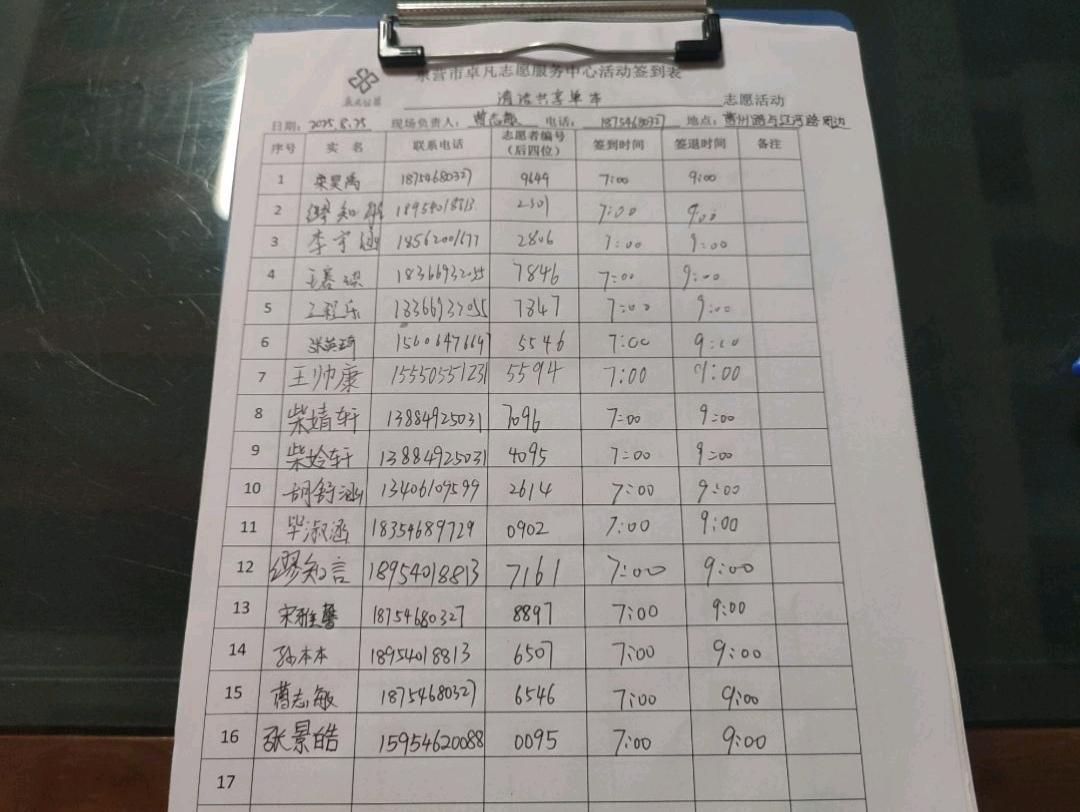 东营市卓凡志愿服务中心活动签到表
清洁共享单车 志愿活动
日期: 2025.8.25 现场负责人: 蔄志敏 电话: 18754680327 地点: 路与辽河路周边
序号 实 名 联系电话 志愿者编号(后四位) 签到时间 签退时间 备注
1 栾昊禹 18754680327 9649 7:00 9:00
2 缪知 18954018813 2301 7:00 9:00
3 李宇涵 18562001677 2806 7:00 9:00
4 王 18366932055 7846 7:00 9:00
5 王 乐 18366932055 7847 7:00 9:00
6 张英琦 15606476647 5546 7:00 9:00
7 王帅康 15550551231 5594 7:00 9:00
8 柴婧轩 13884925031 7096 7:00 9:00
9 柴姈轩 13884925031 4095 7:00 9:00
10 胡舒涵 13406109599 2614 7:00 9:00
11 毕淑涵 18354689729 0902 7:00 9:00
12 缪知言 18954018813 7161 7:00 9:00
13 宋雅馨 18754680327 8897 7:00 9:00
14 孙本本 18954018813 6507 7:00 9:00
15 蔄志敏 18754680327 6546 7:00 9:00
16 张景皓 15954620088 0095 7:00 9:00
17